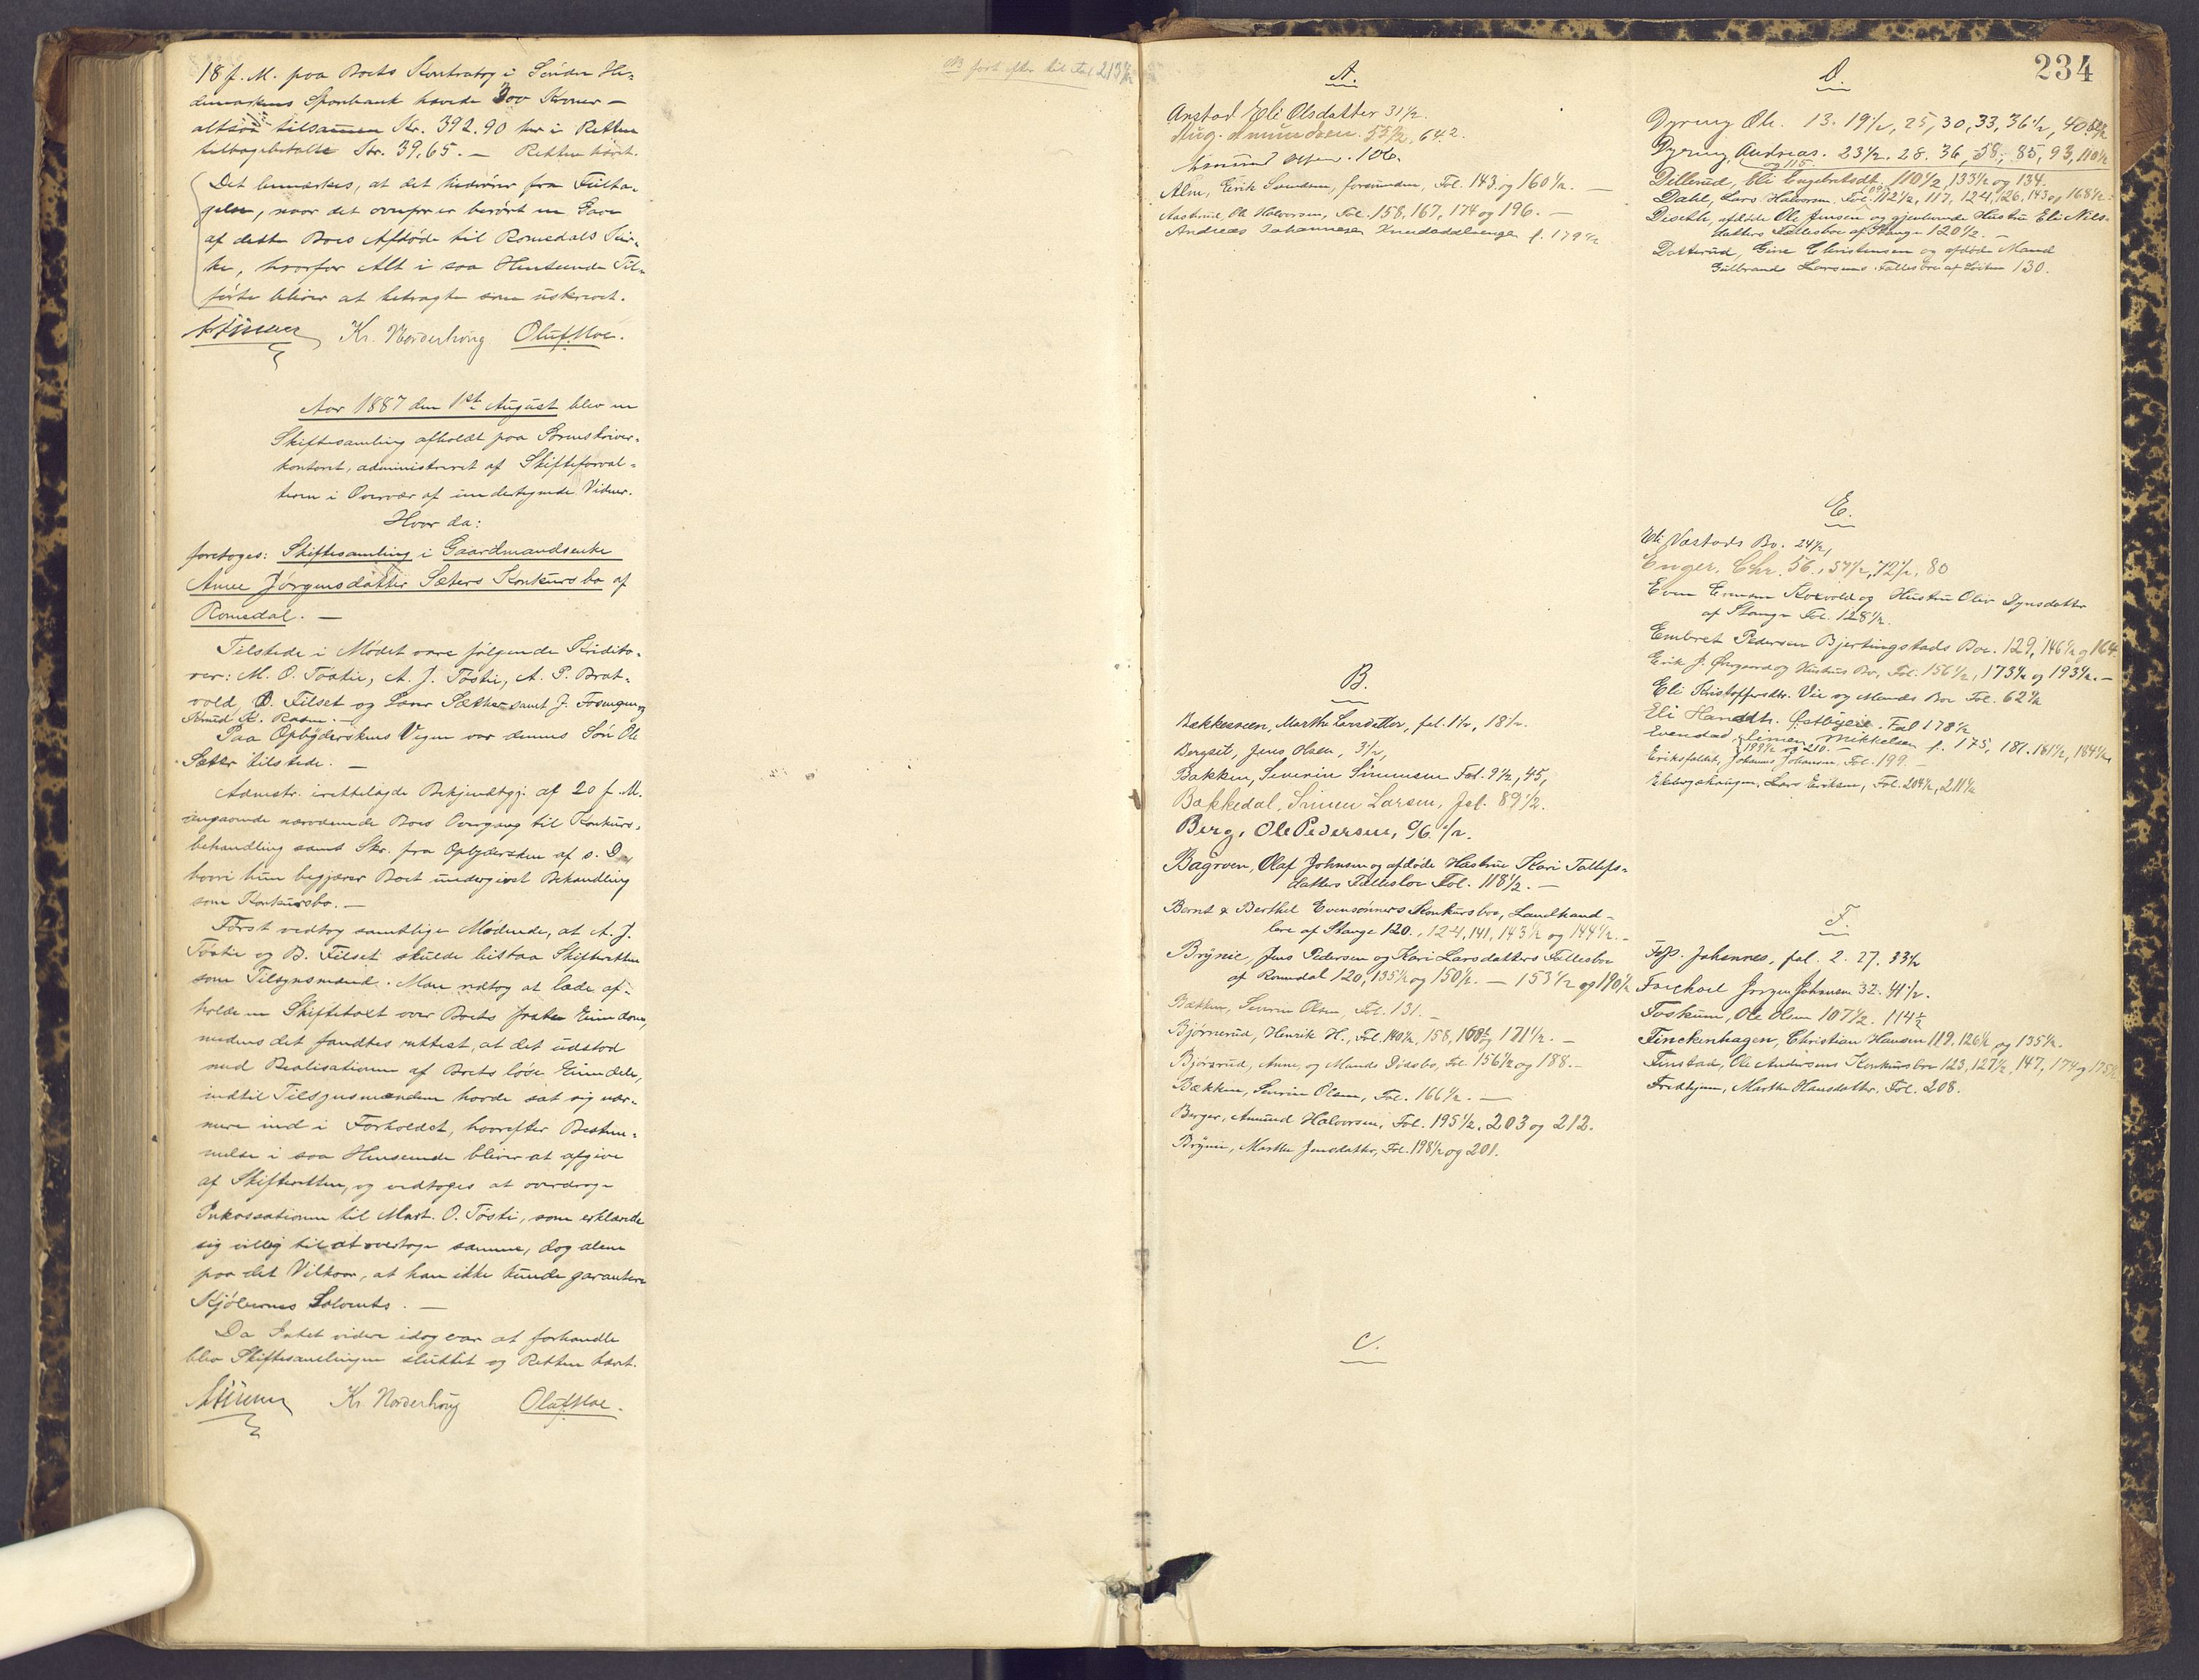 18 f. M. paa Boets Kontrabog i Søndre He-
demarkens Sparebank hævede 300 Kroner –
altsaa tilsammen Kr. 392.90 her i Retten
tilbagebetalte Kr. 39,65. – Retten hævet.
Det bemærkes, at det hidrører fra Feilta-
gelse, naar det ovenfor er berørt en Gave
af dette Boes Afdøde til Romedals Kir-
ke, hvorfor Alt i saa Henseende Til-
førte bliver at betragte som uskrevet.
Kr. Norderhoug Oluf Moe.
Aar 1887 den 1st August blev en
Skiftesamling afholdt paa Sorenskriver-
kontoret, administreret af Skifteforval-
teren i Overvær af undertegnede Vidner.
Hvor da:
foretoges: Skiftesamling i Gaardmandsenke
Anne Jørgensdatter Sæters Konkursbo af
Romedal. –
Tilstede i Mødet vare følgende Kredito-
rer: M. O. Tostie, A. J. Tostie, A. P. Brat-
vold, B. Filset og Lars Sæther samt J. Fosungen og
Knud K. Roen. –
Paa Opbyderskens Vegne var dennes Søn Ole
Sæter tilstede. –
Admstr. irettelagde Bekjendtgj. af 20 f. M.
angaaende nærværende Boes Overgang til Konkurs-
behandling samt Skr. fra Opbydersken af s. D.,
hvori hun begjærer Boet undergivet Behandling
som Konkursbo. –
Først vedtog samtlige Mødende, at A. J.
Tostie og B. Filset skulde bistaa Skifteretten
som Tilsynsmænd. Man vedtog at lade af-
holde en Skiftetaxt over Boets faste Eiendom,
medens det fandtes rettest, at det udstod
med Realisationen af Boets løse Eiendele,
indtil Tilsynsmændene havde sat sig nær-
mere ind i Forholdet, hvorefter Bestem-
melse i saa Henseende bliver at afgive
af Skifteretten, og vedtoges at overdrage
Inkassationen til Mart. O. Tosti, som erklærede
sig villig til at overtage samme, dog alene
paa det Vilkaar, at han ikke kunde garantere
Kjøbernes Solvents. –
Da Intet videre idag var at forhandle
blev Skiftesamlingen sluttet og Retten hævet.
Kr. Norderhoug Oluf Moe.
NB fort efter til Fol 213 1/2
A.
Anstad Eli Olsdatter 31 1/2.
Aug. Amundsen. 55 1/2, 64 2.
Amund Olsen. 106.
Alm, Eirik Svendsen, forsvunden, Fol. 143 og 160 1/2. –
Aasterud, Ole Halvorsen, Fol. 158, 167, 174 og 196. –
Andreas Johannesen Knudsdalsenge f. 179 1/2
B.
Bækkeveen, Marthe Larsdatter, fol. 1 1/2, 18 1/2.
Bergset, Jens Olsen, 3 1/2,
Bakken, Severin Simensen Fol. 9 1/2, 45,
Bakkedal, Simen Larsen, Fol. 89 1/2.
Berg, Ole Pedersen, 96 1/2.
Bagroen, Olaf Johnsen og afdøde Hustru Kari Tollefs-
datters Fællesbo Fol. 118 1/2. –
Bernt & Berthel Evensønners Konkursbo, Landhand-
lere af Stange 120., 124, 141, 143 1/2 og 144 1/2. –
Brynie, Jens Pedersen og Kari Larsdatters Fællesbo
af Romedal 120, 135 1/2 og 150 1/2. – 153 1/2 og 190 1/2
Bækken, Severin Olsen, Fol. 131. –
Bjørnerud, Henrik H., Fol. 140 1/2, 158, 168 1/2, 171 1/2. –
Bjørnrud, Anne, og Mands Dødsbo, Fol. 156 1/2 og 188. –
Bækken, Severin Olsen, Fol. 166 1/2. –
Berger, Amund Halvorsen, Fol. 195 1/2, 203 og 212.
Brynie, Marthe Jensdatter, Fol. 198 1/2 og 201.
C.
234
D.
Dyring Ole. 13. 19 1/2, 25, 30, 33, 36 1/2, 40
Dyring, Andreas. 23 1/2. 28. 36, 58, 85, 93, 110 1/2
og 115
Dillerud, Eli Engebretsdtr. 110 1/2, 133 1/2 og 134.
Dahl, Lars Halvorsen, Fol. 112 1/2, 117, 124, 126, 143 og 168 1/2
Diseth, afdøde Ole Jensen og gjenlevende Hustru Eli Nils-
datters Fællesbo af Stange 120 1/2. –
Dotterud, Gine Christensen og afdøde Mand
Gulbrand Larsens Fællesbo af Løiten 130.
E.
Eli Væstads Bo. 24 1/2,
Enger, Chr. 56., 57 1/2, 72 1/2, 80
Even Evensen Korvold og Hustru Oliv Synsdatter
af Stange Fol. 128 1/2.
Embret Pedersen Bjertingstads Bo. 129, 146 1/2 og 164.
Erik J. Ørgaard og Hustrus Bo, Fol. 156 1/2, 173 1/2 og 193 1/2. –
Eli Kristoffersdtr. Vie og Mands Bo Fol. 62 1/2
Eli Hansdtr. Østbyeie. Fol 178 1/2
Evenstad, Simen Mikkelsen f. 175, 181. 181 1/2, 184 1/2,
199 1/2 og 210. –
Eriksfaldet, Johannes Johansen, Fol. 199. –
Ekebergshaugen, Lars Eriksen, Fol. 204 1/2, 211 1/2
F.
Fos. Johannes, fol. 2. 27. 33 1/2
Jørgen Johnsen 32. 41 1/2.
Foskum, Ole Olsen 107 1/2. 114 1/2
Finckenhagen, Christian Hansen 119. 126 1/2 og 135 1/2.
Finstad, Ole Andersens Konkursbo 123, 127 1/2, 147, 174 og 175 1/2
Fredhjem, Marthe Hansdatter, Fol. 208.